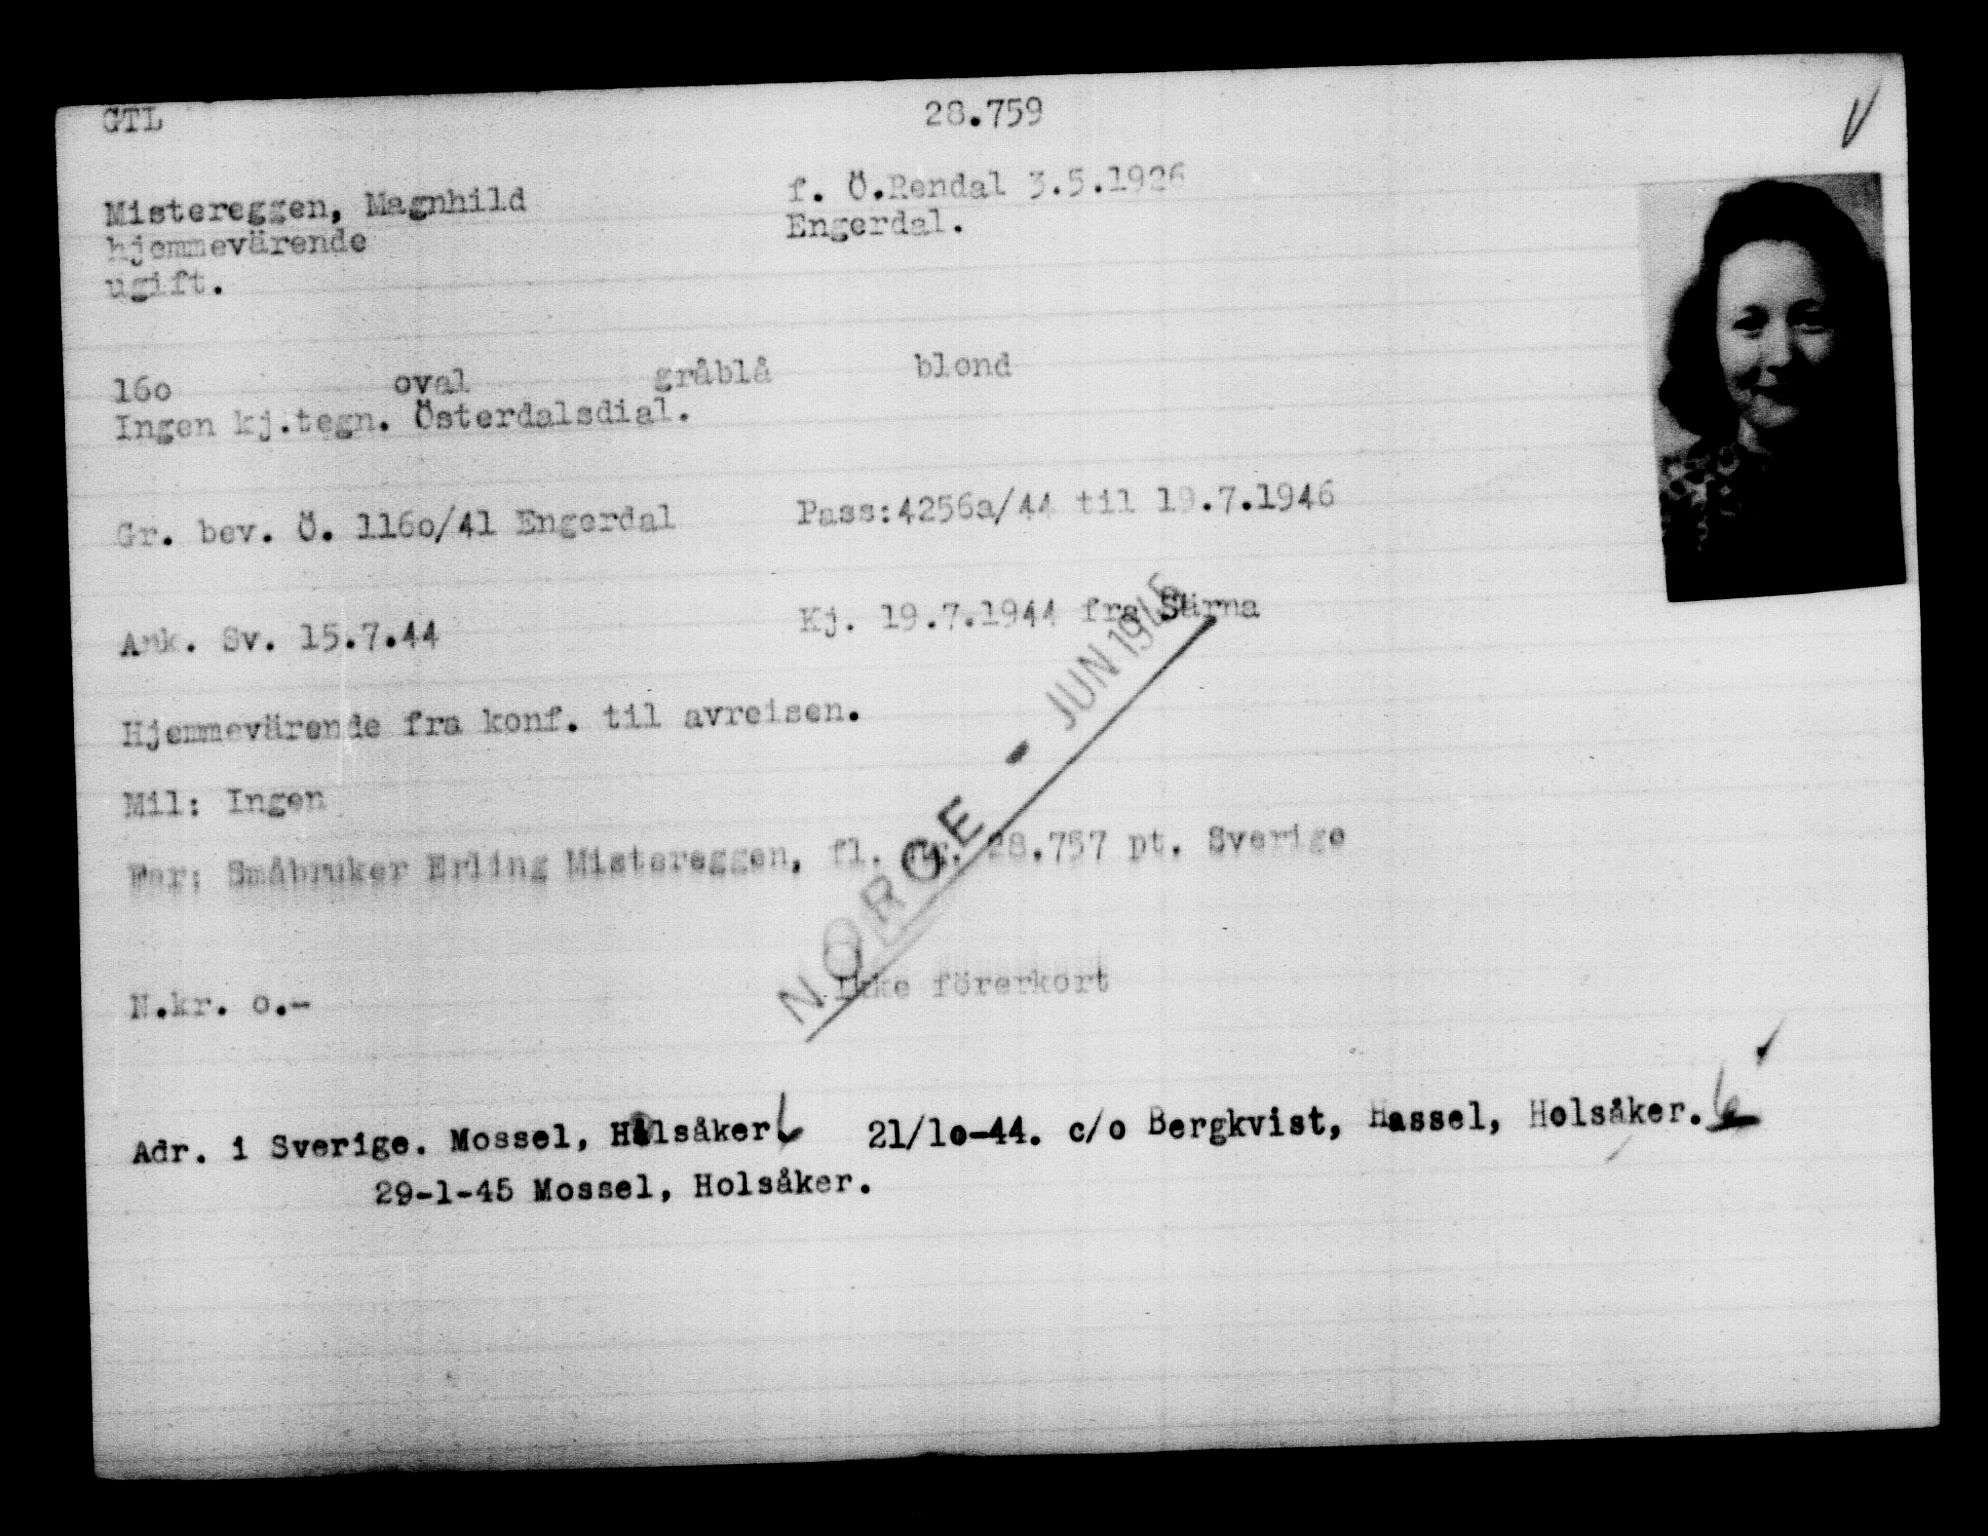 GTL 28.759
Mistereggen, Magnhild f. Ö.Rendal 3.5.1926
hjemmevärende Engerdal.
ugift.
16o oval gråblå blond
Ingen kj.tegn. Österdalsdial.
Gr. bev. Ö. 116o/41 Engerdal Pass:4256a/44 til 19.7.1946
Ank. Sv. 15.7.44 Kj. 19.7.1944 fra Särna
Hjemmevärende fra konf. til avreisen.
NORGE - JUN 1945
Mil: Ingen
Far: Småbruker Erling Mistereggen, fl. nr. 28.757 pt. Sverige
N.kr. o.- Ikke förerkort
Adr. i Sverige. Mossel, Holsåker 21/1o-44. c/o Bergkvist, Hassel, Holsåker.
29-1-45 Mossel, Holsåker.